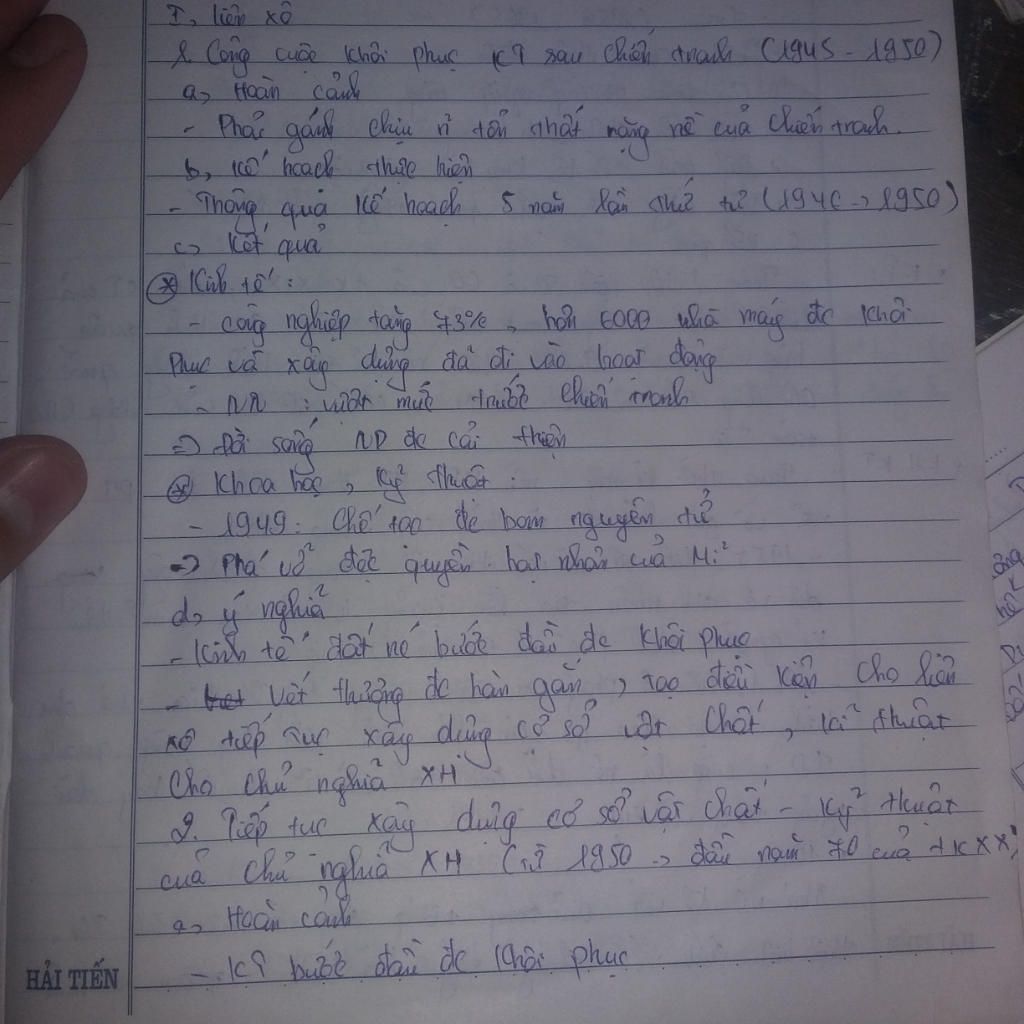 I, liên xô
1. Công cuộc khôi phục KT sau chiến tranh (1945 - 1950)
a, Hoàn cảnh
- Phải gánh chịu n~ tổn thất nặng nề của chiến tranh.
b, Kế hoạch thực hiện
- Thông qua Kế hoạch 5 năm lần thứ tư (1946 -> 1950)
c, Kết quả
* Kinh tế :
- công nghiệp tăng 73% , hơn 6000 nhà máy đc khôi
phục và xây dựng đã đi vào hoạt động
- NN : vượt mức trước chiến tranh
=> Đời sống ND đc cải thiện
* Khoa học , Kỹ thuật :
- 1949 : Chế tạo đc bom nguyên tử
=> Phá vỡ độc quyền hạt nhân của Mĩ
d, ý nghĩa
- Kinh tế đất nc bước đầu đc khôi phục
- Vết thương đc hàn gắn , tạo điều kiện cho liên
xô tiếp tục xây dựng cơ sở vật chất , kĩ thuật
cho chủ nghĩa XH
2. Tiếp tục xây dựng cơ sở vật chất - kỹ thuật
của chủ nghĩa XH (từ 1950 -> đầu năm 70 của tk XX)
a, Hoàn cảnh
- KT bước đầu đc khôi phục
HẢI TIẾN